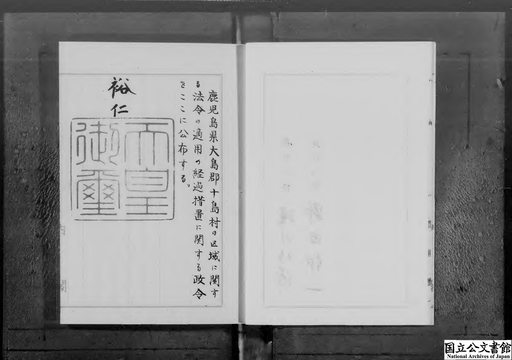 鹿児島県大島郡十島村の区域に関す
る法令の適用の経過措置に関する政令
をここに公布する。
裕仁
天皇
御璽
国立公文書館
National Archives of Japan